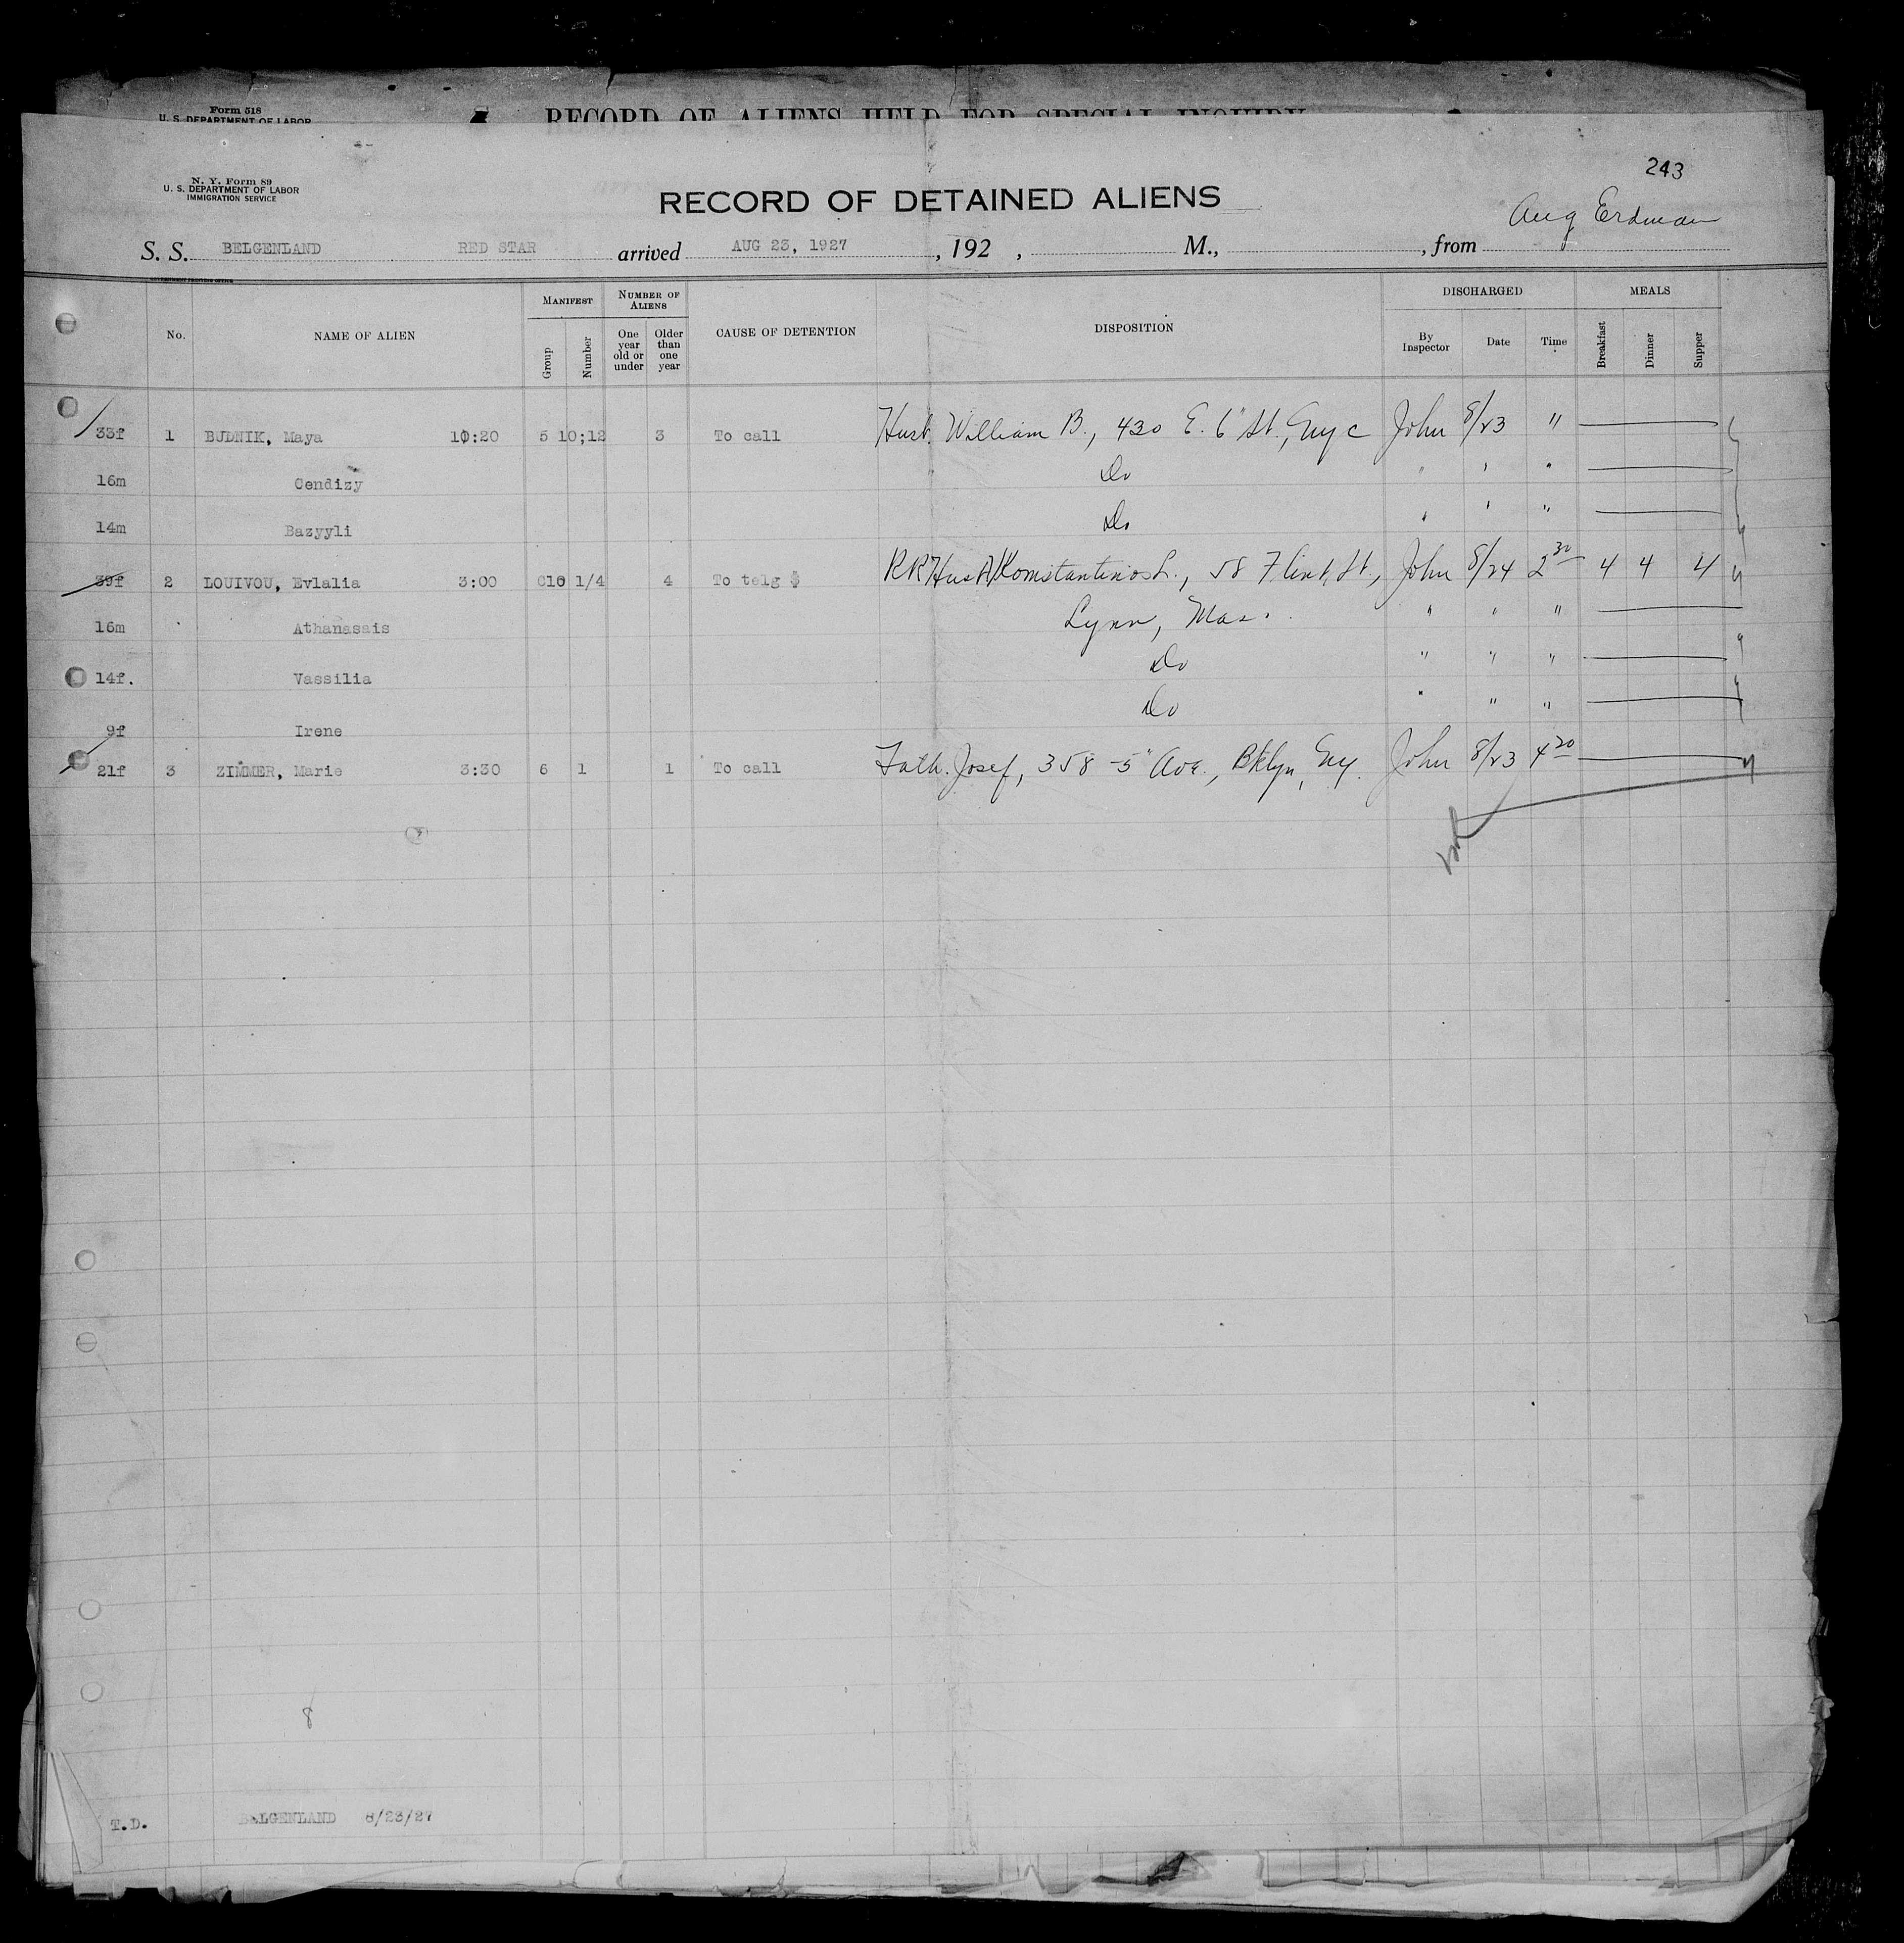 Form 518
U. S. DEPARTMENT OF LABOR
RECORD OF ALIENS HELD FOR SPECIAL INQUIRY
243
N. Y. Form 89
U. S. DEPARTMENT OF LABOR
IMMIGRATION SERVICE
RECORD OF DETAINED ALIENS
Aug Erdman
S. S. BELGENLAND RED STAR arrived AUG 23, 1927 , 192 , M., , from
GOVERNMENT PRINTING OFFICE
No. NAME OF ALIEN MANIFEST Group Number NUMBER OF ALIENS One year old or under Older than one year CAUSE OF DETENTION DISPOSITION DISCHARGED By Inspector Date Time MEALS Breakfast Dinner Supper
33f 1 BUDNIK, Maya 10:20 5 10;12 3 To call Husb. William B., 430 E. 6" St., Nyc John 8/23 "
16m Cendizy Do " " "
14m Bazyyli Do " " "
39f 2 LOUIVOU, Evlalia 3:00 C10 1/4 4 To telg $ RR Husb Komstantinos L., 58 Flint St., John 8/24 2 30 4 4 4
16m Athanasais Lynn, Mas. " " "
14f. Vassilia Do " " "
9f Irene Do " " "
21f 3 ZIMMER, Marie 3:30 6 1 1 To call Fath. Josef, 358 - 5" Ave., Bklyn, Ny. John 8/23 4 20
8
T.D. BELGENLAND 8/23/27